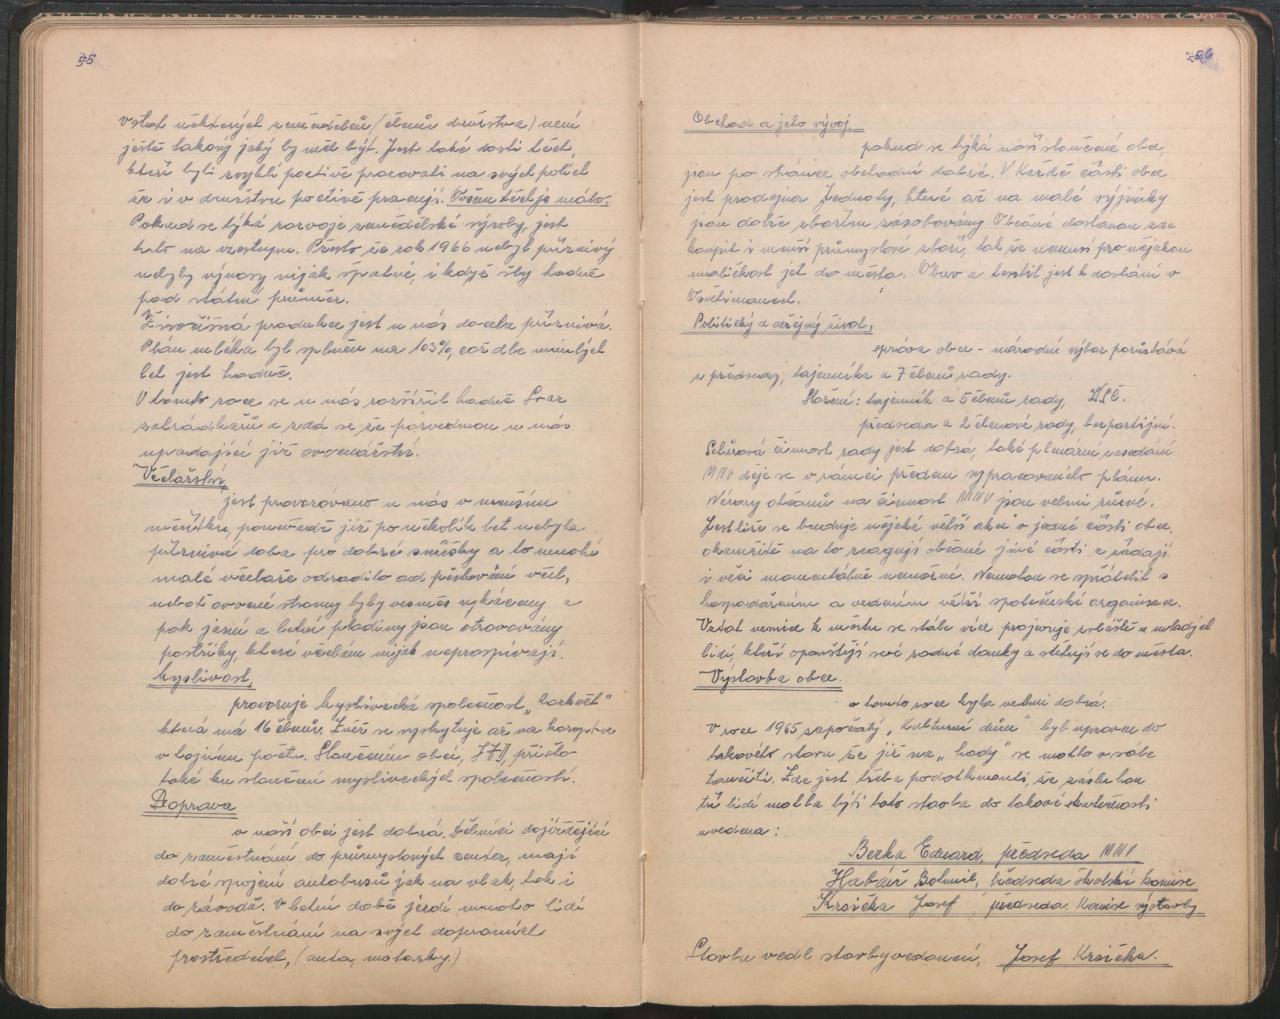 55
vztah některých zemědělců (členů družstva) není
ještě takový jaký by měl být. Jest také dosti těch,
kteří byli zvyklí poctivě pracovati na svých polích
že i v družstvu poctivě pracují. Ovšem těch je málo.
Pokud se týká rozvoje zemědělské výroby, jest
tato na vzestupu. Přesto že rok 1966 nebyl příznivý
nebyly výnosy nijak špatné, i když šly hodně
pod státní průměr.
Živočišná produkce jest u nás docela příznivá.
Plán mléka byl splněn na 103%, což dle minulých
let jest hodně.
V tomto roce se u nás rozšířil hodně Svaz
zahrádkářů a zdá se že pozvednou u nás
upadající již ovocnářství.
Včelařství,
jest provozováno u nás v menším
měřítku, poněvadž již po několik let nebyla
příznivá doba pro dobré snůšky a to mnohé
malé včelaře odradilo od pěstování včel,
neboť ovocné stromy byly vesměs vykáceny a
pak jarní a letní plodiny jsou otravovány
postřiky, které včelám nijak neprospívají.
Myslivost,
provozuje Myslivecká společnost „
která má 16 členů. Zvěř se vyskytuje až na koroptve
v hojném počtu. Sloučením obcí, JZD, přišlo
také ku sloučení mysliveckých společností.
Doprava
v naší obci jest dobrá. Dělníci dojíždějící
do zaměstnání do průmyslových center, mají
dobré spojení autobusů jak na vlak, tak i
do závodů. V letní době jezdí mnoho lidí
do zaměstnání na svých dopravních
prostředcích, (auta, motorky.)
56
Obchod a jeho vývoj,
pokud se týká naší sloučené obce,
jsou po stránce obchodní dobré. V každé části obce
jest prodejna Jednoty, které až na malé výjimky
jsou dobře zbožím zásobovány. Občané dostanou zde
koupit i menší průmyslové zboží, tak že nemusí pro nějakou
maličkost jet do města. Obuv a textil jest k dostání v
Osvětimanech.
Politický a veřejný život,
správa obce - národní výbor pozůstává
z předsedy, tajemníka a 7 členů rady.
Složení: tajemník a 5 členů rady, KSČ.
předseda a 2 členové rady, bezpartijní.
Schůzová činnost rady jest dobrá, také plenární zasedání
MNV děje se v rámci předem vypracovaného plánu.
Názory občanů na činnost MNV jsou velmi různé.
Jestliže se buduje nějaké větší akce v jedné části obce,
okamžitě na to reagují občané jiné části a žádají
i věci momentálně nemožné. Nemohou se spřátelit s
hospodařením a vedením větší společenské organisace.
Vztah vesnice k městu se stále více projevuje zvláště u mladých
lidí, kteří opouštějí své rodné domky a stěhují se do města.
Výstavba obce.
v tomto roce byla velmi dobrá.
V roce 1965 započatý „Kulturní dům" byl upraven do
takového stavu že již na „hody" se mohlo v sále
tančiti. Zde jest třeba podotknouti, že zásluhou
tří lidí mohla býti tato stavba do takové skutečnosti
uvedena:
Berka Eduard, předseda MNV
Habáň Bohumil, předseda školské komise
Krsička Josef předseda komise výstavby
Stavbu vedl stavbyvedoucí, Josef Krsička.